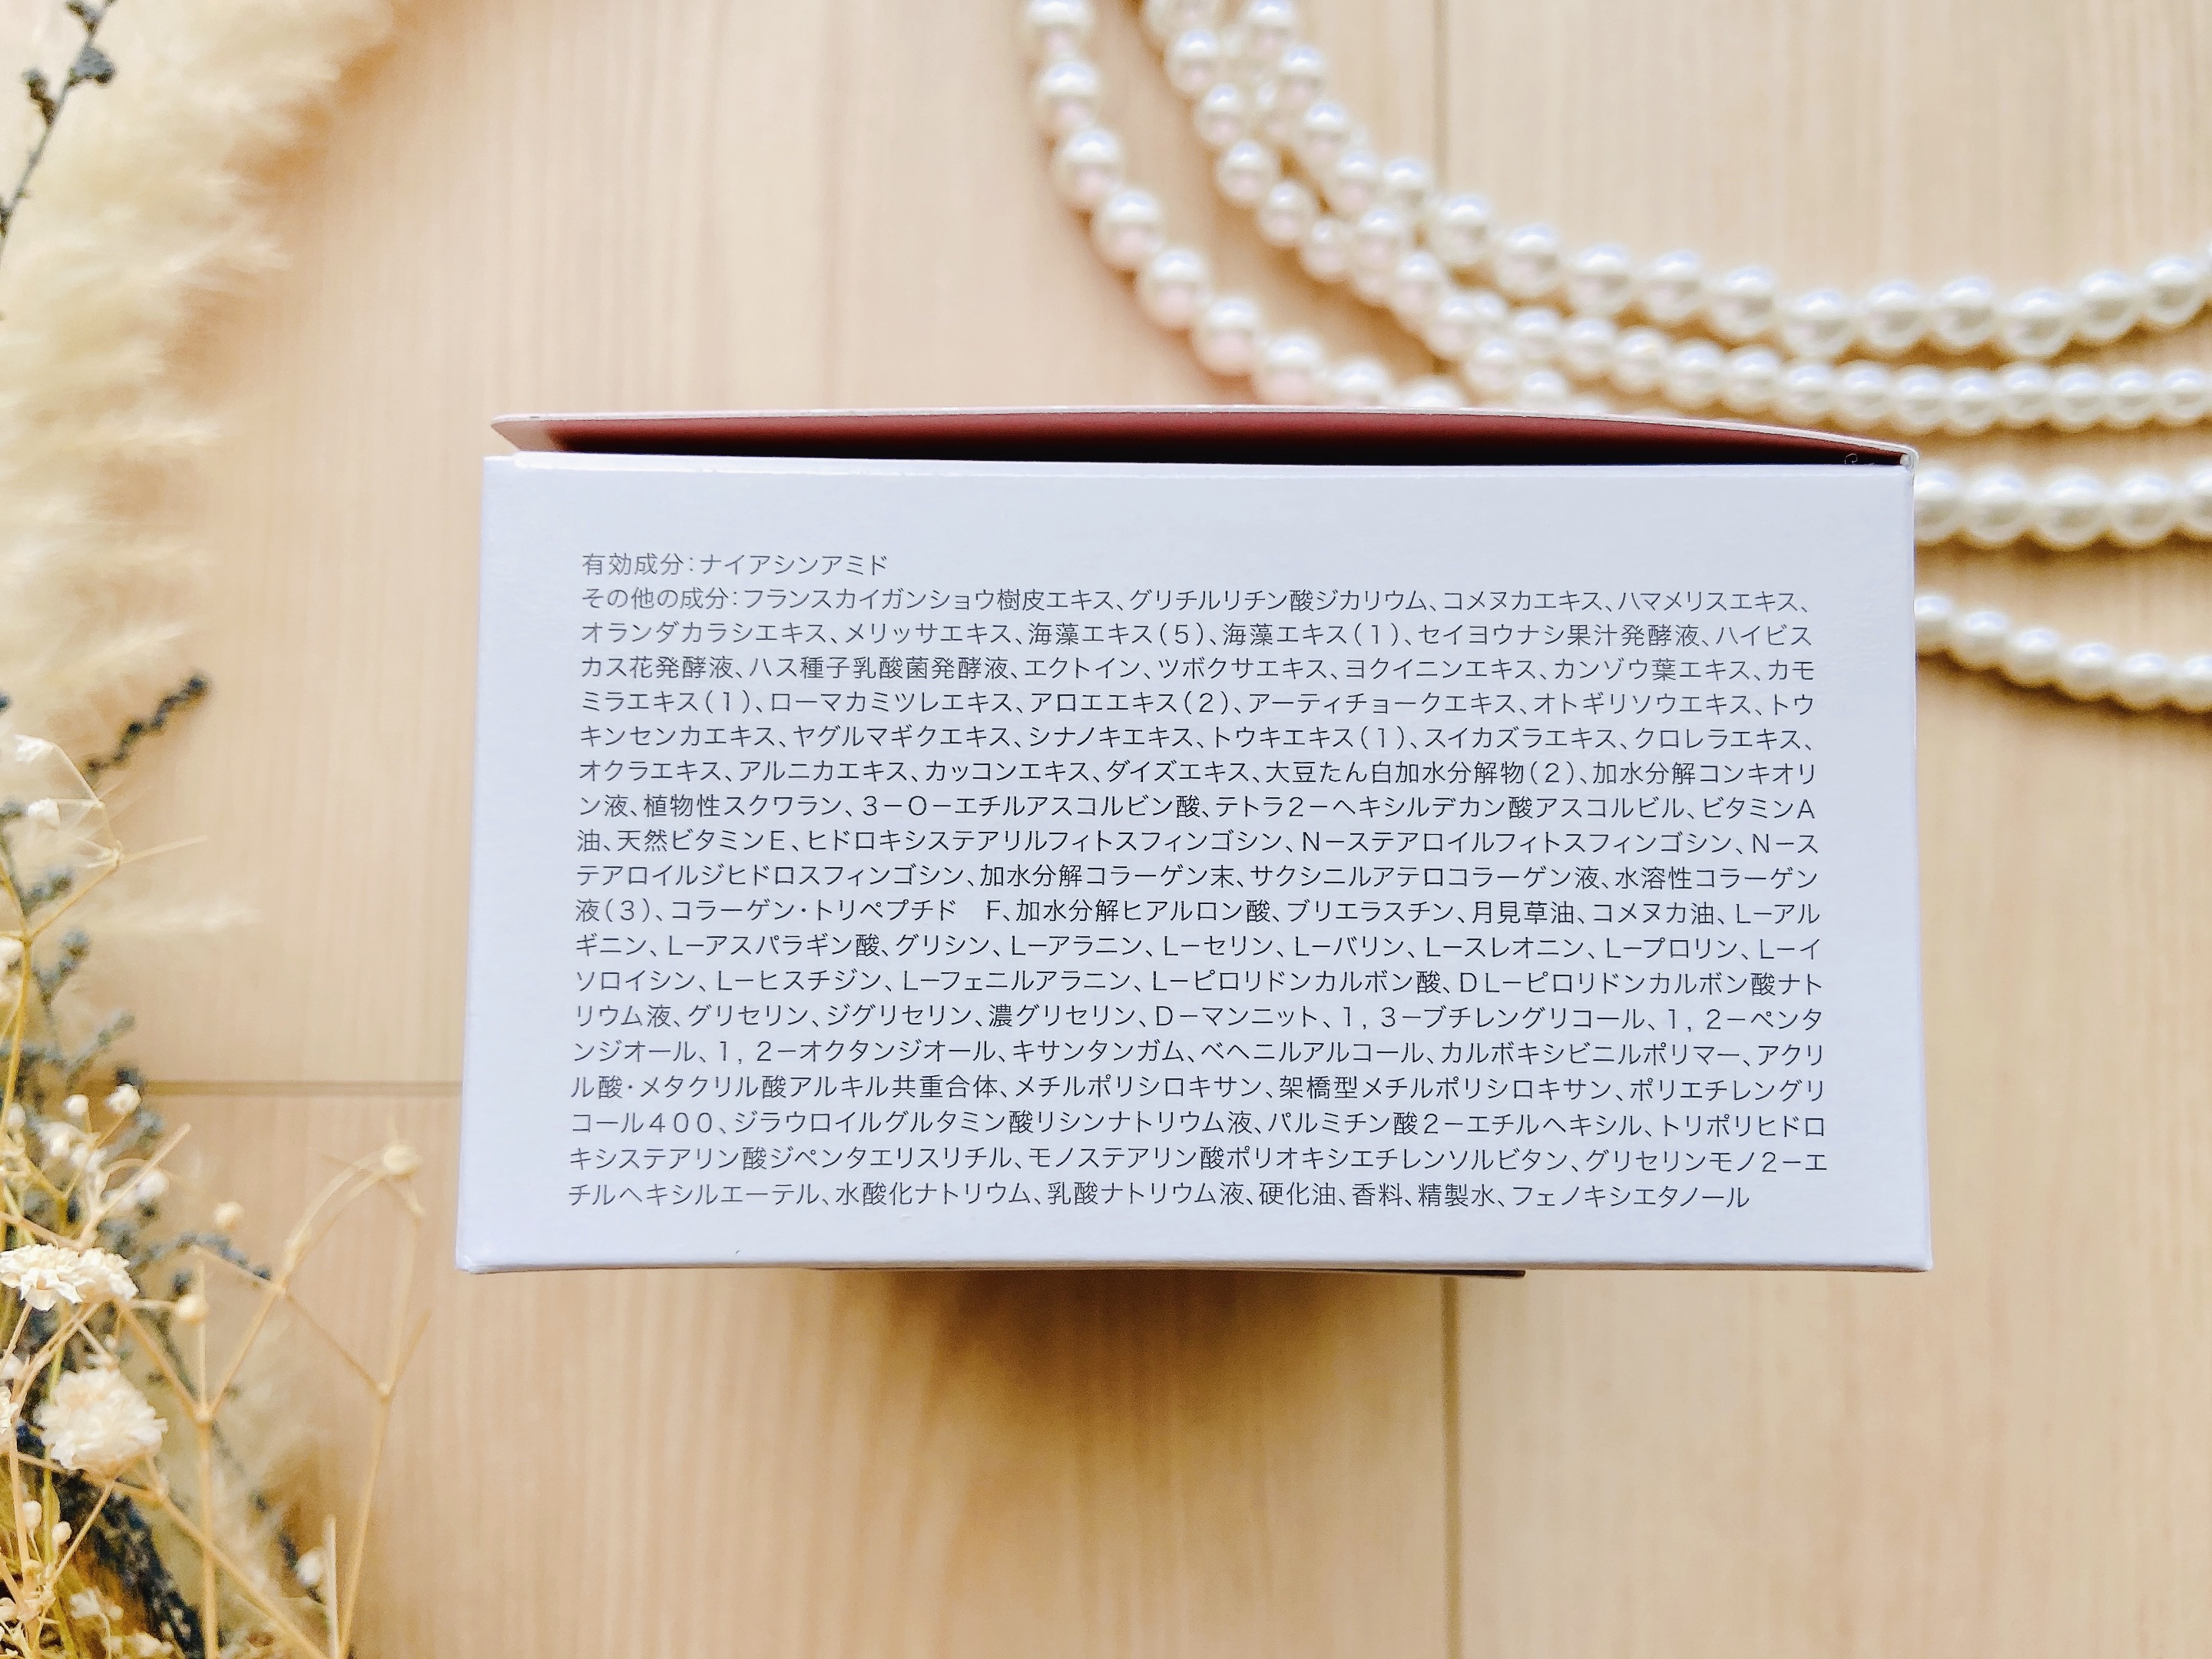 有効成分：ナイアシンアミド
その他の成分：フランスカイガンショウ樹皮エキス、グリチルリチン酸ジカリウム、コメヌカエキス、ハマメリスエキス、
オランダカラシエキス、メリッサエキス、海藻エキス（５）、海藻エキス（１）、セイヨウナシ果汁発酵液、ハイビス
カス花発酵液、ハス種子乳酸菌発酵液、エクトイン、ツボクサエキス、ヨクイニンエキス、カンゾウ葉エキス、カモ
ミラエキス（１）、ローマカミツレエキス、アロエエキス（２）、アーティチョークエキス、オトギリソウエキス、トウ
キンセンカエキス、ヤグルマギクエキス、シナノキエキス、トウキエキス（１）、スイカズラエキス、クロレラエキス、
オクラエキス、アルニカエキス、カッコンエキス、ダイズエキス、大豆たん白加水分解物（２）、加水分解コンキオリ
ン液、植物性スクワラン、３－Ｏ－エチルアスコルビン酸、テトラ２－ヘキシルデカン酸アスコルビル、ビタミンＡ
油、天然ビタミンＥ、ヒドロキシステアリルフィトスフィンゴシン、Ｎ－ステアロイルフィトスフィンゴシン、Ｎ－ス
テアロイルジヒドロスフィンゴシン、加水分解コラーゲン末、サクシニルアテロコラーゲン液、水溶性コラーゲン
液（３）、コラーゲン・トリペプチド　Ｆ、加水分解ヒアルロン酸、ブリエラスチン、月見草油、コメヌカ油、Ｌ－アル
ギニン、Ｌ－アスパラギン酸、グリシン、Ｌ－アラニン、Ｌ－セリン、Ｌ－バリン、Ｌ－スレオニン、Ｌ－プロリン、Ｌ－イ
ソロイシン、Ｌ－ヒスチジン、Ｌ－フェニルアラニン、Ｌ－ピロリドンカルボン酸、ＤＬ－ピロリドンカルボン酸ナト
リウム液、グリセリン、ジグリセリン、濃グリセリン、Ｄ－マンニット、１，３－ブチレングリコール、１，２－ペンタ
ンジオール、１，２－オクタンジオール、キサンタンガム、ベヘニルアルコール、カルボキシビニルポリマー、アクリ
ル酸・メタクリル酸アルキル共重合体、メチルポリシロキサン、架橋型メチルポリシロキサン、ポリエチレングリ
コール４００、ジラウロイルグルタミン酸リシンナトリウム液、パルミチン酸２－エチルヘキシル、トリポリヒドロ
キシステアリン酸ジペンタエリスリチル、モノステアリン酸ポリオキシエチレンソルビタン、グリセリンモノ２－エ
チルヘキシルエーテル、水酸化ナトリウム、乳酸ナトリウム液、硬化油、香料、精製水、フェノキシエタノール